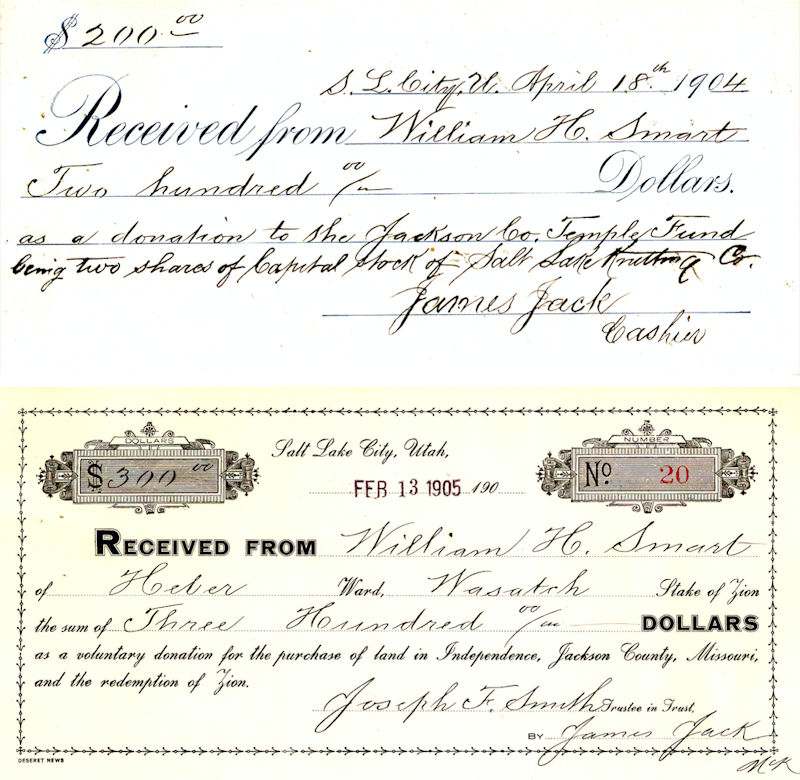 $ 200.00
S. L. City, U. April 18th 1904
Received from William H. Smart
Two hundred 00/ Dollars.
as a donation to the Jackson Co. Temple Fund
being two shares of Capital stock of Salt Lake Knitting Co.
James Jack
Cashier
DOLLARS
$ 300 00
Salt Lake City, Utah,
FEB 13 1905 190
NUMBER
No. 20
RECEIVED FROM William H. Smart
of Heber Ward, Wasatch Stake of Zion
the sum of Three Hundred 00/ DOLLARS
as a voluntary donation for the purchase of land in Independence, Jackson County, Missouri,
and the redemption of Zion.
Joseph F. Smith Trustee in Trust.
BY James Jack
DESERET NEWS